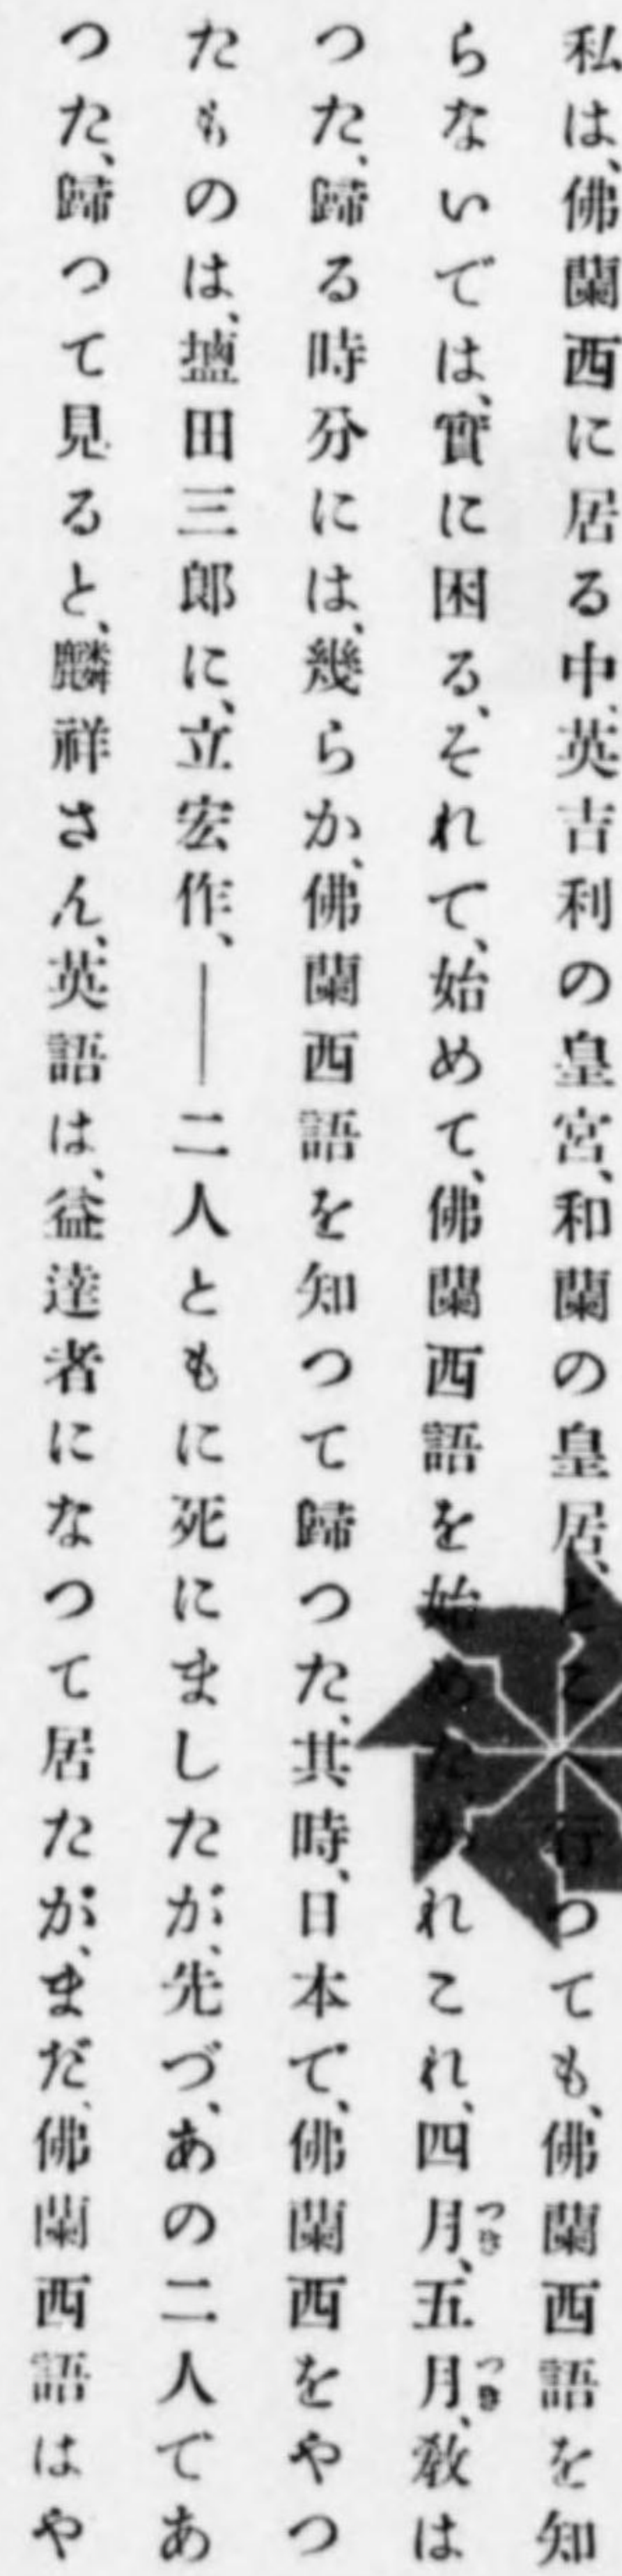 私は、佛蘭西に居る中、英吉利の皇宮、和蘭の皇居、どこ 行つても、佛蘭西語を知
らないでは、實に困る、それで、始めて、佛蘭西語を始めた、かれこれ、四月、五月、敎は
つた、歸る時分には、幾らか、佛蘭西語を知つて歸つた、其時、日本で、佛蘭西をやつ
たものは、塩田三郎に、立宏作、――二人ともに死にましたが、先づ、あの二人であ
つた、歸つて見ると、麟祥さん、英語は、益達者になつて居たが、まだ、佛蘭西語はや
つき
つき